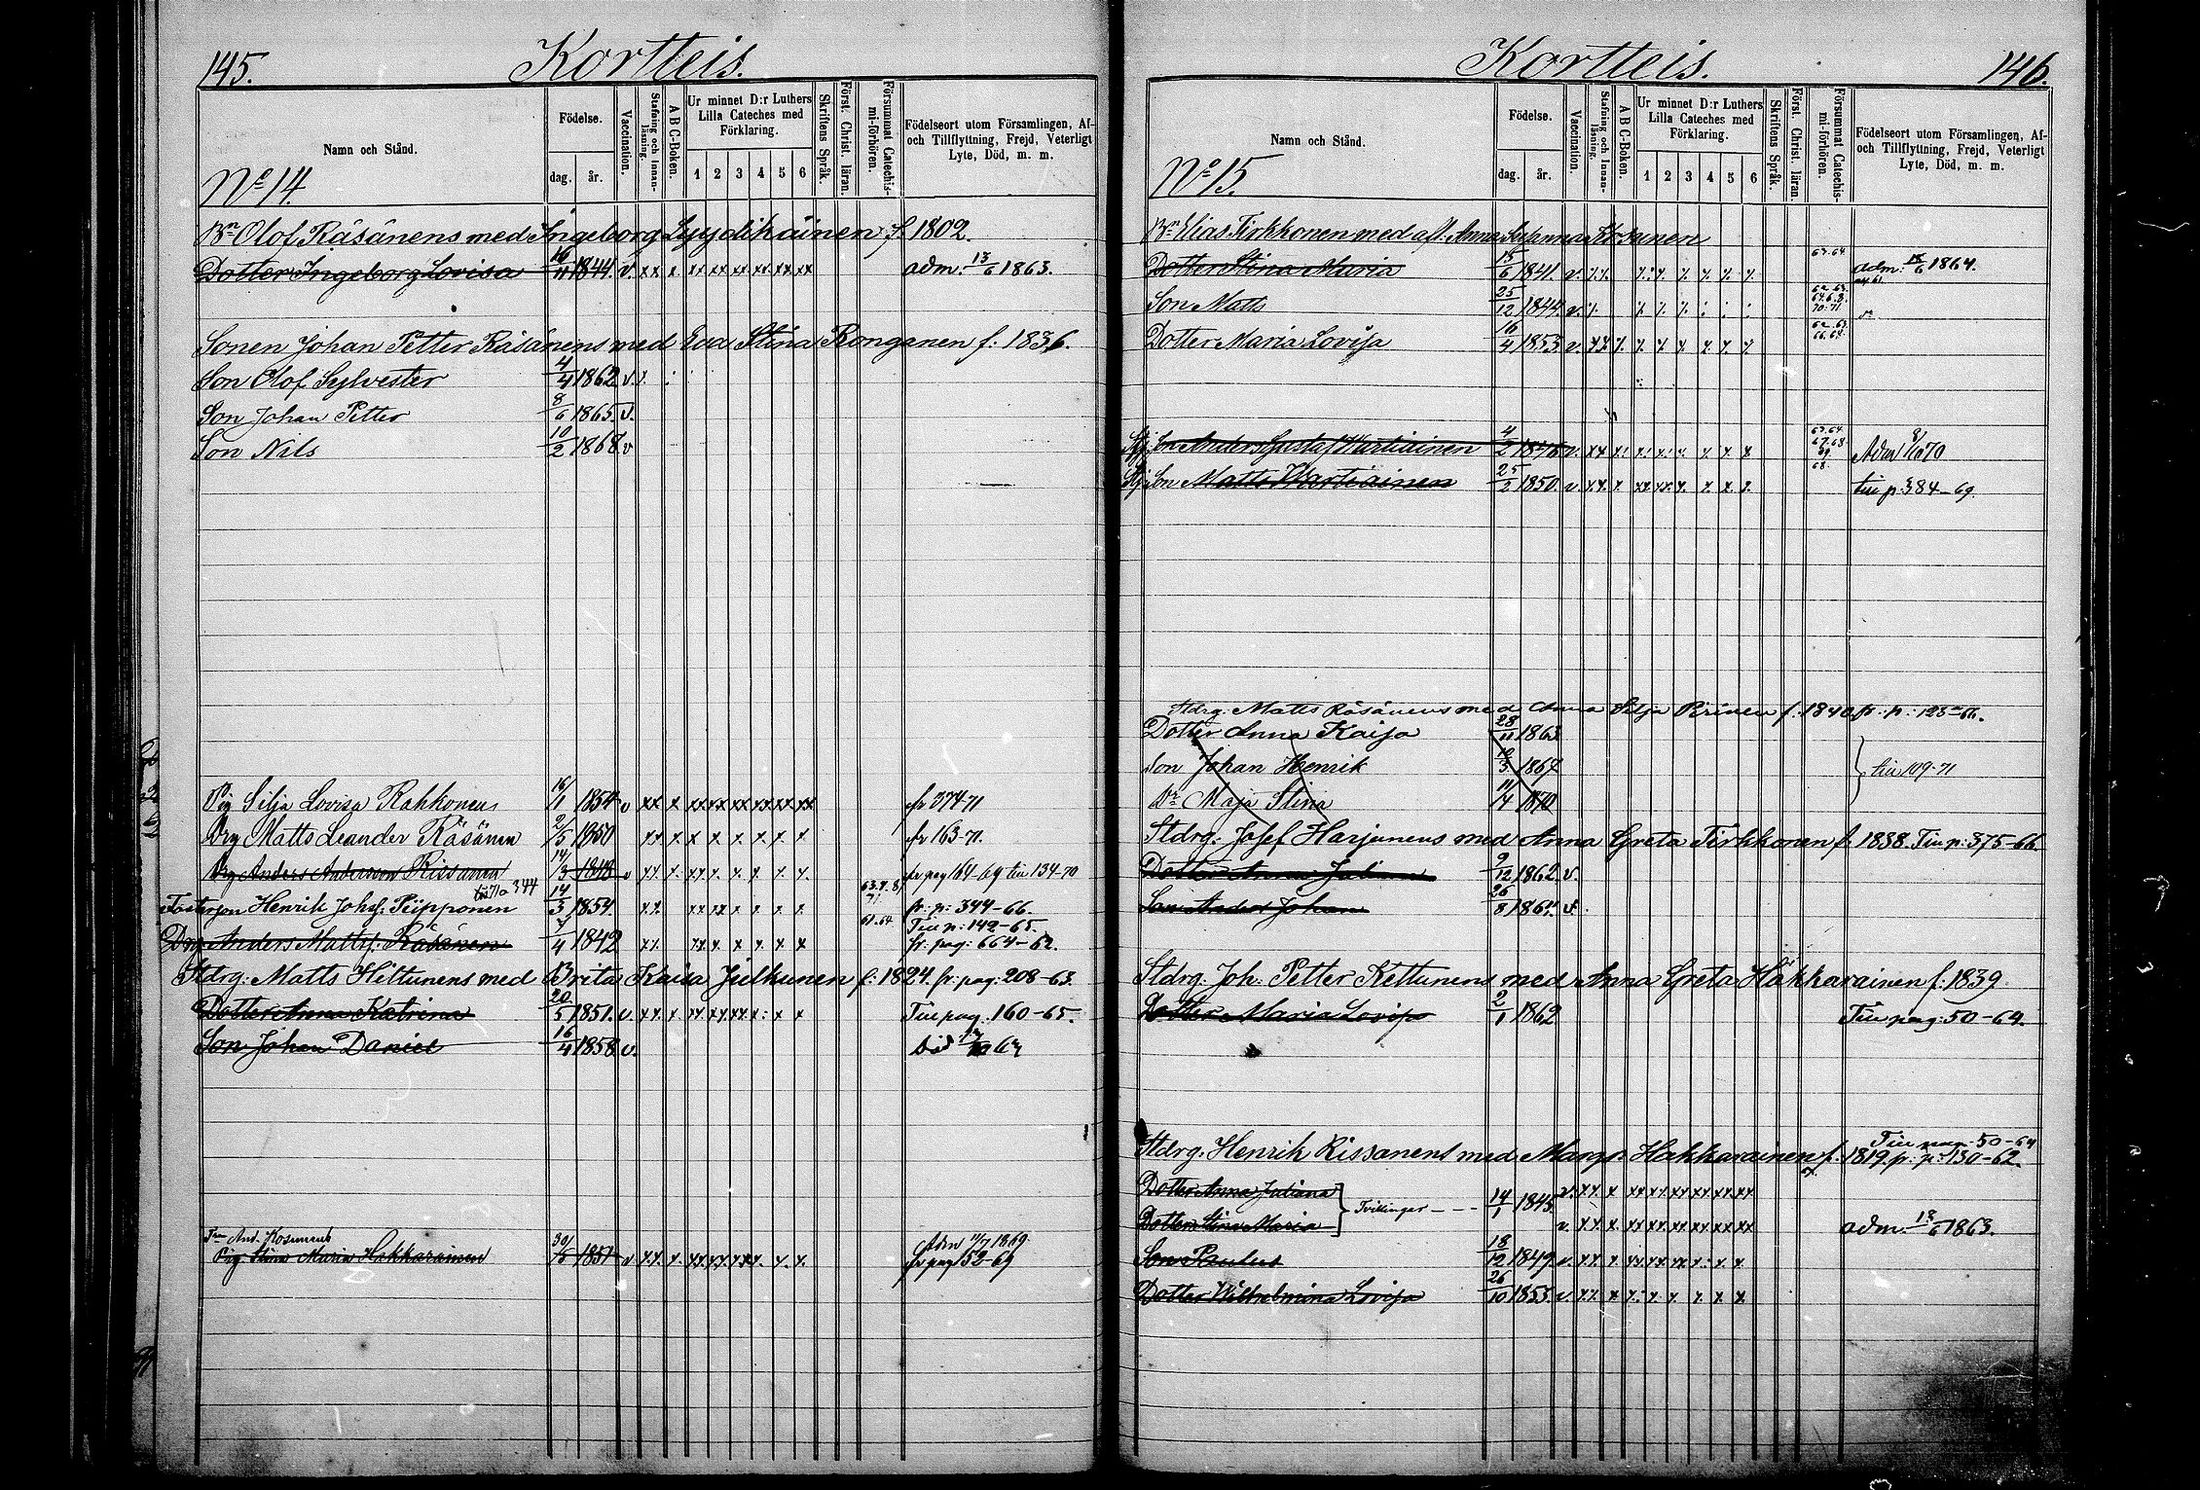 145.
Kortteis.
Namn och Stånd.
Födelse.
dag. år.
Vaccination.
Stafning och Innanläsning.
A B C-Boken.
Ur minnet D:r Luthers Lilla Cateches med Förklaring.
1 2 3 4 5 6
Skriftens Språk.
Först. Christ. läran.
Försummat Catechismi-förhören.
Födelseort utom Församlingen, Af- och Tillflyttning, Frejd, Veterligt Lyte, Död, m. m.
No 14.
Bn Olof Räsänens med Ingeborg Lyydikäinen f. 1802.
Dotter Ingeborg Lovisa 16/11 1844. v. xx x xx xx xx xx xx xx adm. 13/6 1863.
Sonen Johan Petter Räsänens med Eva Stina Ronganen f: 1836.
Son Olof Sylvester 4/4 1862 v.
Son Johan Petter 8/6 1865 v.
Son Nils 10/2 1868 v
Pig Silja Lovisa Rahkonen 16/1 1854 v xx x xx xx xx xx xx xx fr 374-71
Drg Matts Leander Räsänen 2/5 1850 xx x x x x x x x fr 163-70.
Drg Anders Andersson Rissanen 14/3 1848 v fr pag 164-69 till 134-70
till 70 344
Fosterson Henrik Johss. Piipponen 14/3 1854 xx xx xx x x x x fr: p: 344-66.
Till p: 149-65.
Drg Anders Mattss. Räsänen 7/4 1842 xx xx x x x x x fr: pag: 664-62.
Stdrg: Matts Hiltunens med Brita Kaisa Julkunen f: 1824. fr: pag: 208-63.
Dotter Anna Katrina 20/5 1851. v. xx x xx xx xx x: x x Till pag. 160-65.
Son Johan Daniel 16/4 1858 v. död 67
And. Kosunens
Pig. Stina Maria Hakkarainen 30/5 1851 v xx x xx xx xx x. x. x. Adm 11/7 1869.
fr pag 152-69
Kortteis.
146.
Namn och Stånd.
Födelse.
dag. år.
Vaccination.
Stafning och Innanläsning.
A B C-Boken.
Ur minnet D:r Luthers Lilla Cateches med Förklaring.
1 2 3 4 5 6
Skriftens Språk.
Först. Christ. läran.
Försummat Catechismi-förhören.
Födelseort utom Församlingen, Af- och Tillflyttning, Frejd, Veterligt Lyte, Död, m. m.
No 15.
Bn Elias Tirkkonen med afl. Anna Susanna
Dotter Stina Maria 15/6 1841. v. 63.64. adm: 1864.
Son Matts 25/12 1844 v.
Dotter Maria Lovisa 16/4 1853. v. xx x. x x x x x x
Son Anders Gustaf Wartiainen 4/2 1846 v. xx x. x x x x x x Adm 70
Son Matts Wartiainen 25/2 1850. v. xx x xx xx x. x. x. x. till p. 384-69.
Stdrg. Matts Räsänens med Anna Silja Piirinen f. 1840 fr. p: 123-66.
Dotter Anna Kaisa 28/11 1863
Son Johan Henrik 1867
Dr Maja Stina 11/4 1870
till 109-71
Stdrg. Josef Harjunens med Anna Greta Tirkkonen f. 1838. Till p: 375-66.
Dotter Anna Juliana 9/12 1862. v.
Son Anders Johan 26/8 1864. v.
Stdrg. Joh: Petter Kettunens med Anna Greta Hakkarainen f: 1839
Dotter Maria Lovisa 2/1 1862 Till pag: 50-64.
Till pag. 50-64
Stdrg. Henrik Rissanens med Margr. Hakkarainen f. 1819. fr: p: 130-62.
Dotter Anna Juliana v. xx x xx xx xx xx xx xx
Tvillingar 14/1 1845
Dotter Stina Maria v. xx x xx xx xx xx xx xx adm: 13/6 1863.
Son Paulus 18/12 1849 v. xx x xx xx xx x. x x
Dotter Wilhelmina Lovisa 26/10 1853. v. xx x x. x. x x x x